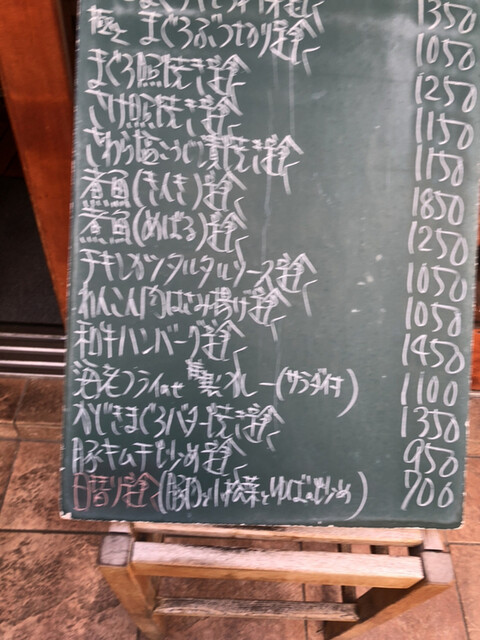 1350
極上まぐろぶつ切り定食 1050
まぐろ照焼き定食 1250
さけ照焼き定食 1150
さわら塩こうじ焼き定食 1150
煮魚(きんき)定食 1850
煮魚(めばる)定食 1250
チキンカツタルタルソース定食 1050
れんこん肉はさみ揚げ定食 1050
和牛ハンバーグ定食 1450
海老フライのせ カレー(サラダ付) 1100
かじきまぐろバター焼き定食 1350
豚キムチ炒め定食 950
日替り定食(豚肉と小松菜とゆばの炒め) 700